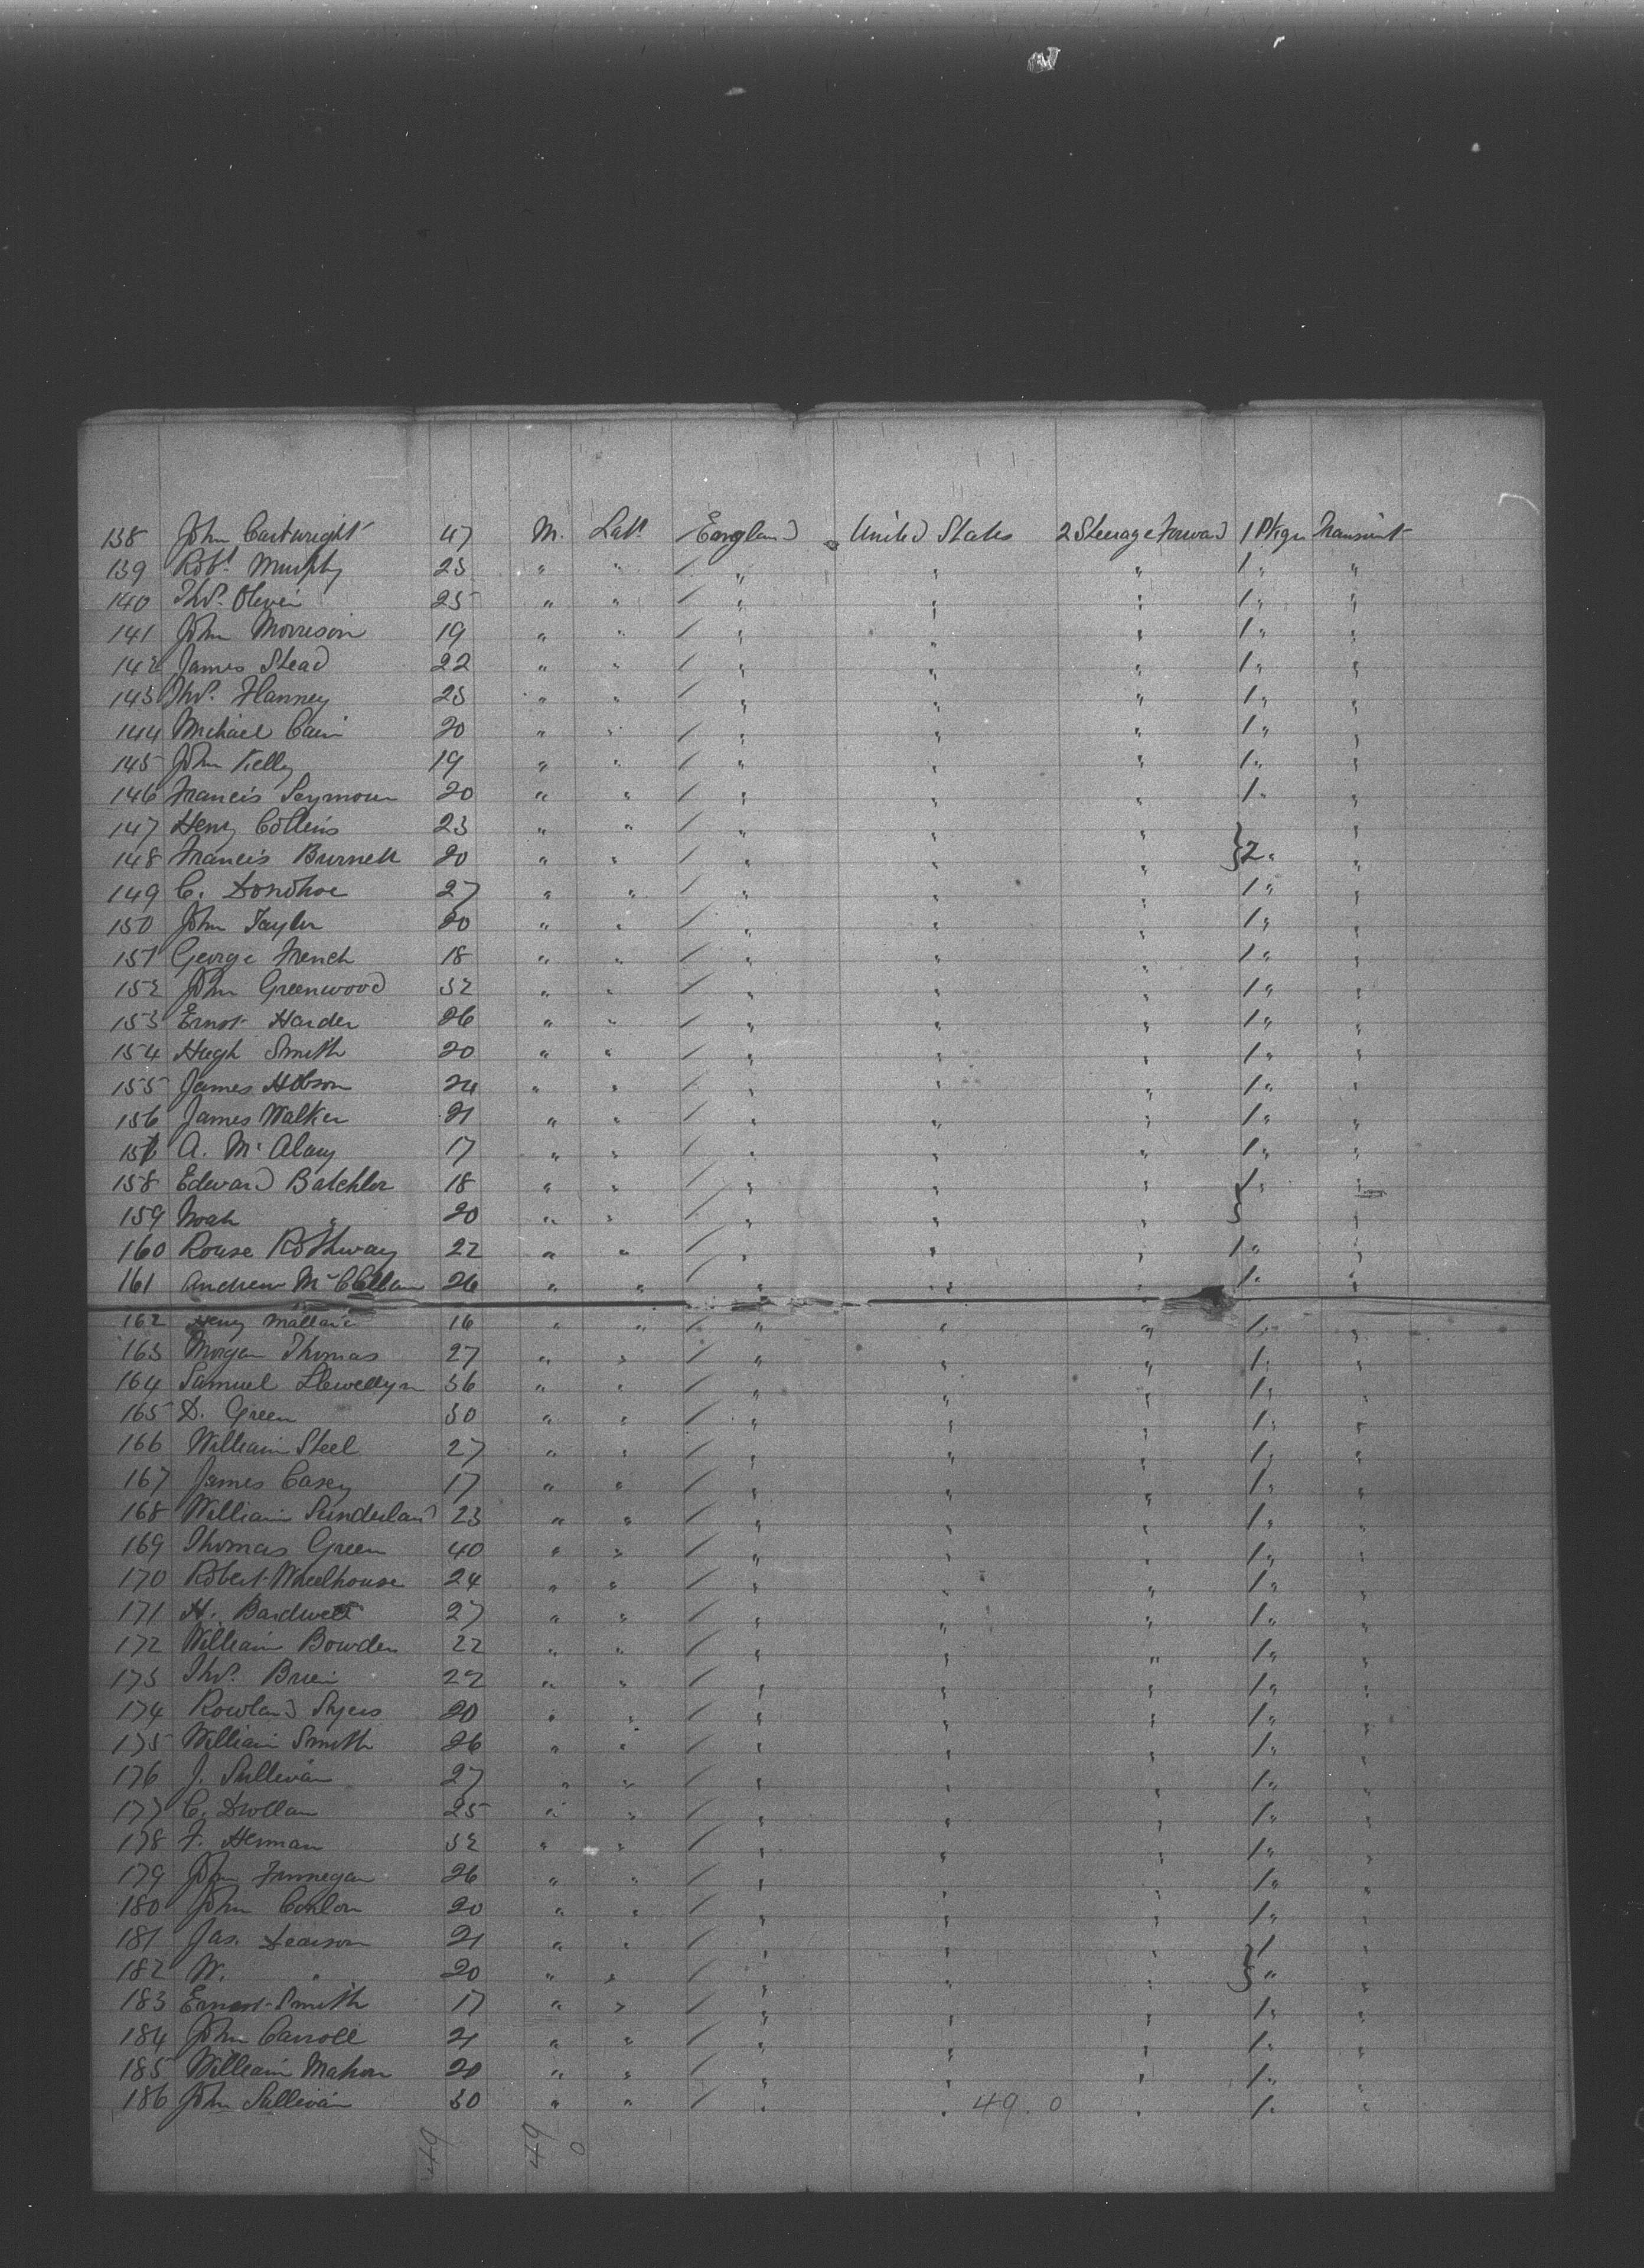 138 John Cartwright 47 M. Labr England United States 2 Steerage Forward 1 Pkge Transient
139 Robt Murphy 23 " " / " " " 1 " "
140 Thos. Oliver 25 " " / " " " 1 " "
141 John Morrison 19 " " / " " " 1 " "
142 James Stead 22 " " / " " " 1 " "
143 Thos. Flanney 23 " " / " " " 1 " "
144 Michael Cain 20 " " / " " " 1 " "
145 John Kelly 19 " " / " " " 1 " "
146 Francis Seymour 20 " " / " " " 1 " "
147 Henry Collins 23 " " / " " " "
148 Francis Burnett 20 " " / " " " } 2 " "
149 C. Donohoe 27 " " / " " " 1 " "
150 John Taylor 20 " " / " " " 1 " "
151 George French 18 " " / " " " 1 " "
152 John Greenwood 32 " " / " " " 1 " "
153 Ernst Harder 26 " " / " " " 1 " "
154 Hugh Smith 20 " " / " " " 1 " "
155 James Hobson 24 " " / " " " 1 " "
156 James Walker 21 " " / " " " 1 " "
157 A. McAlary 17 " " / " " " 1 " "
158 Edward Batchlor 18 " " / " " " 1 " "
159 Noah " 20 " " / " " " } "
160 Rouse Rothway 22 " " / " " " 1 " "
161 Andrew McClellan 26 " " / " " " 1 " "
162 Henry 16 " " / " " " 1 " "
163 Morgan Thomas 27 " " / " " " 1 " "
164 Samuel Llewellyn 36 " " / " " " 1 " "
165 D. Green 30 " " / " " " 1 " "
166 William Steel 27 " " / " " " 1 " "
167 James Casey 17 " " / " " " 1 " "
168 William Sunderland 23 " " / " " " 1 " "
169 Thomas Green 40 " " / " " " 1 " "
170 Robert Wheelhouse 24 " " / " " " 1 " "
171 H. Bardwell 27 " " / " " " 1 " "
172 William Bowden 22 " " / " " " 1 " "
173 Thos. Brien 22 " " / " " " 1 " "
174 Rowland Syers 20 " " / " " " 1 " "
175 William Smith 26 " " / " " " 1 " "
176 J. Sullivan 27 " " / " " " 1 " "
177 C. Drollan 25 " " / " " " 1 " "
178 F. Herman 32 " " / " " " 1 " "
179 John Finnegan 26 " " / " " " 1 " "
180 John Conlon 20 " " / " " " 1 " "
181 Jas. Dearson 21 " " / " " " } 1 "
182 W. " 20 " " / " " " " "
183 Ernest Smith 17 " " / " " " 1 " "
184 John Carroll 21 " " / " " " 1 " "
185 William Mahon 20 " " / " " " 1 " "
186 John Sullivan 30 " " / " " 49. 0 " 1 " "
49 49 0